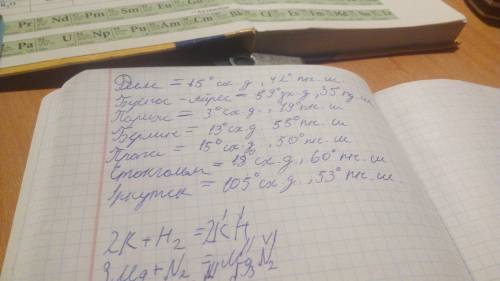 Pr Nd Pm Sm Eu
Pa U Np Pu Am Cm Bk Cf Es Fm
= 15° сх.д., 42° пн.ш
Буенос-Айрес = 59° зх.д, 35° пд.ш
Париж = 3° сх.д., 49° пн.ш
Берлин = 13° сх.д 55° пн.ш
Прага = 15° сх.д, 50° пн.ш.
Стокгольм = 19° сх.д, 60° пн.ш.
Іркутск = 105° сх.д., 53° пн.ш.
2K + H₂ = 2KH
3Mg + N₂ = Mg₃N₂